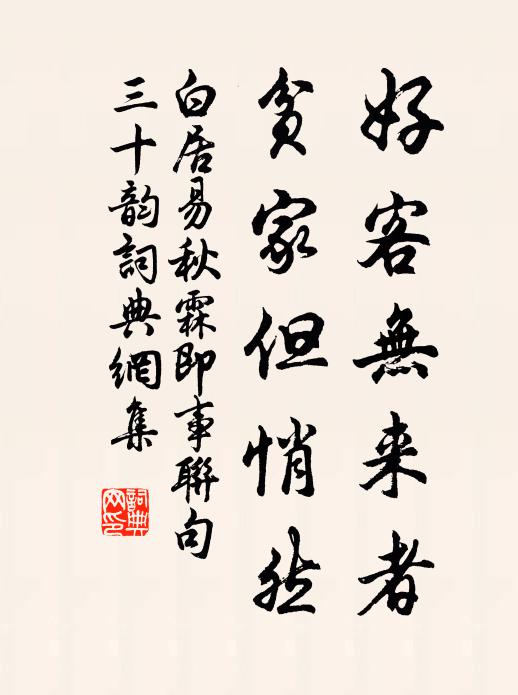 好客無来者
貧家但悄然
白居易秋霖即事聯句
三十韵詞典網集
詞典网印